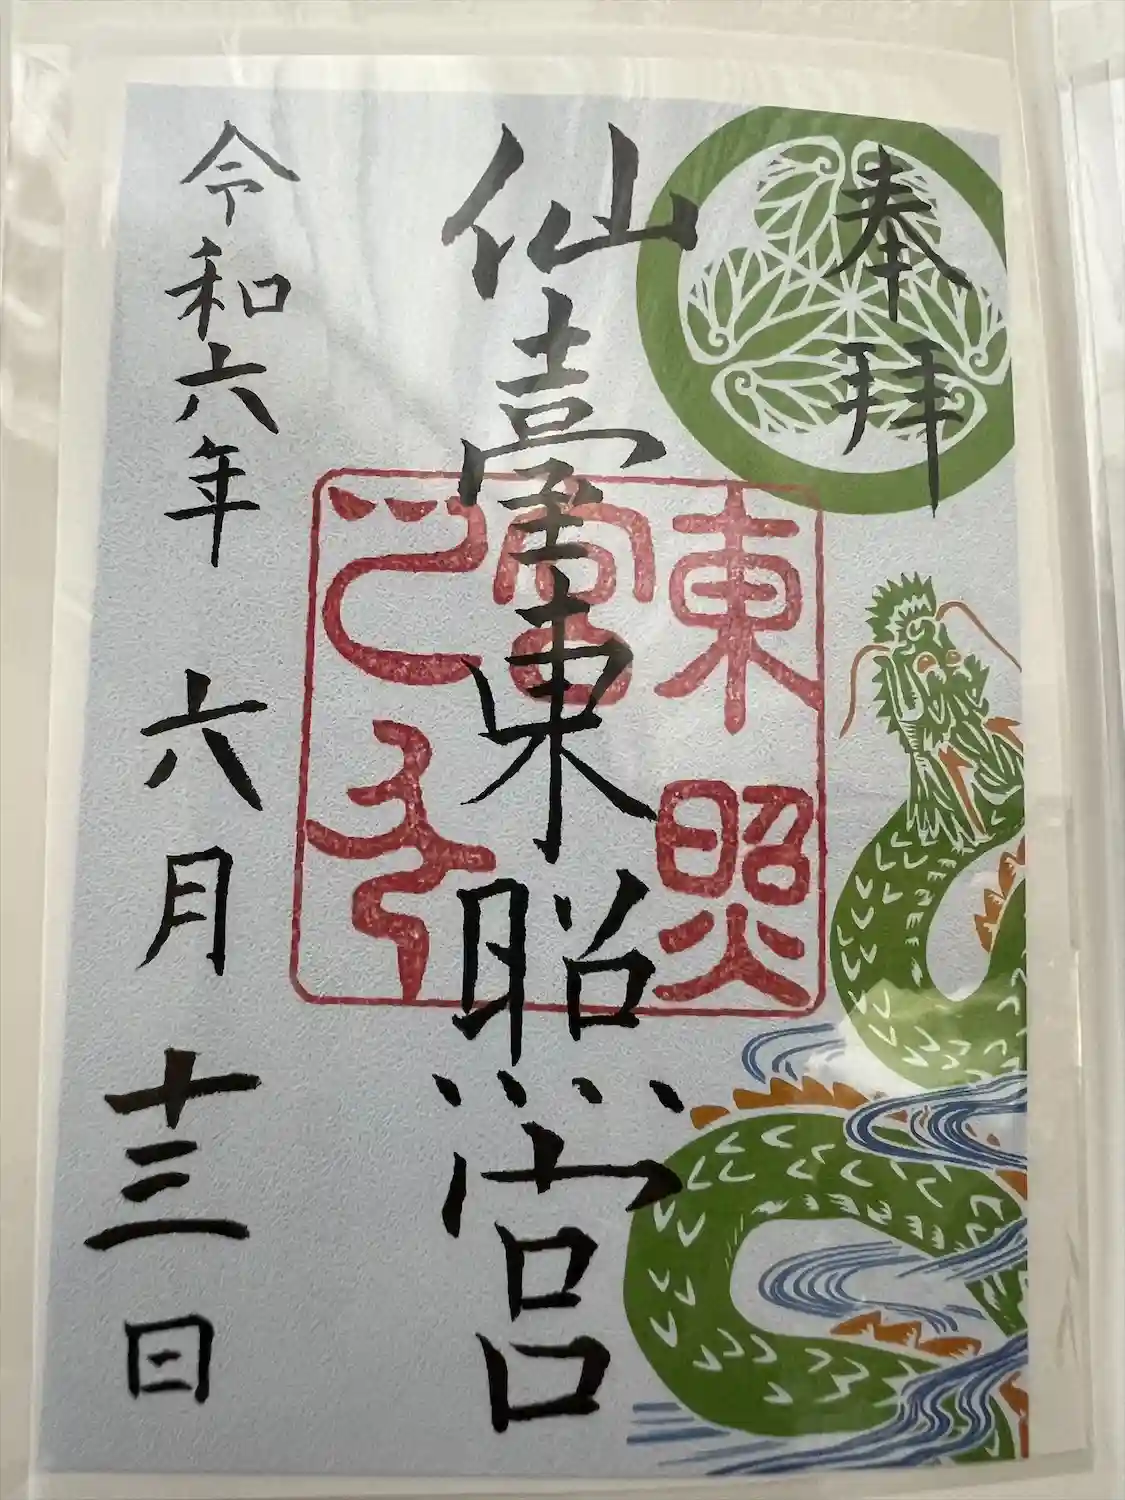 奉拝
仙臺東照宮
東照
宮
令和六年 六月 十三日